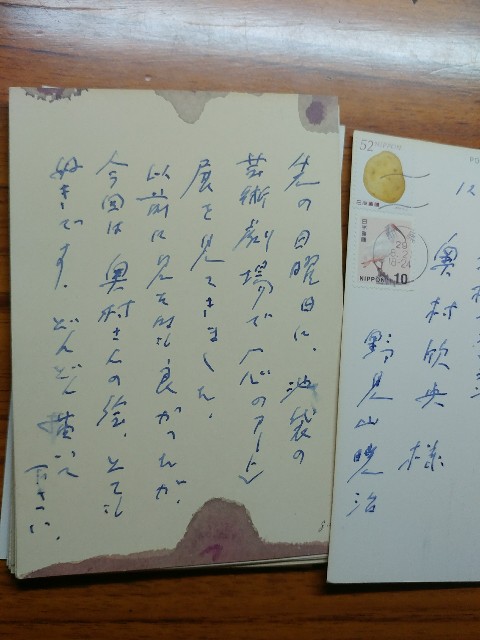 先の日曜日に、池袋の
芸術劇場で〈心のアート〉
展を見てきました。
以前に見た時も良かったが、
今回は奥村さんの絵、とても
好きです。どんどん描いて
下さい。
52 NIPPON
日本郵便
日本郵便
NIPPON 10
29
18-24
奥村欣央様
野見山暁治